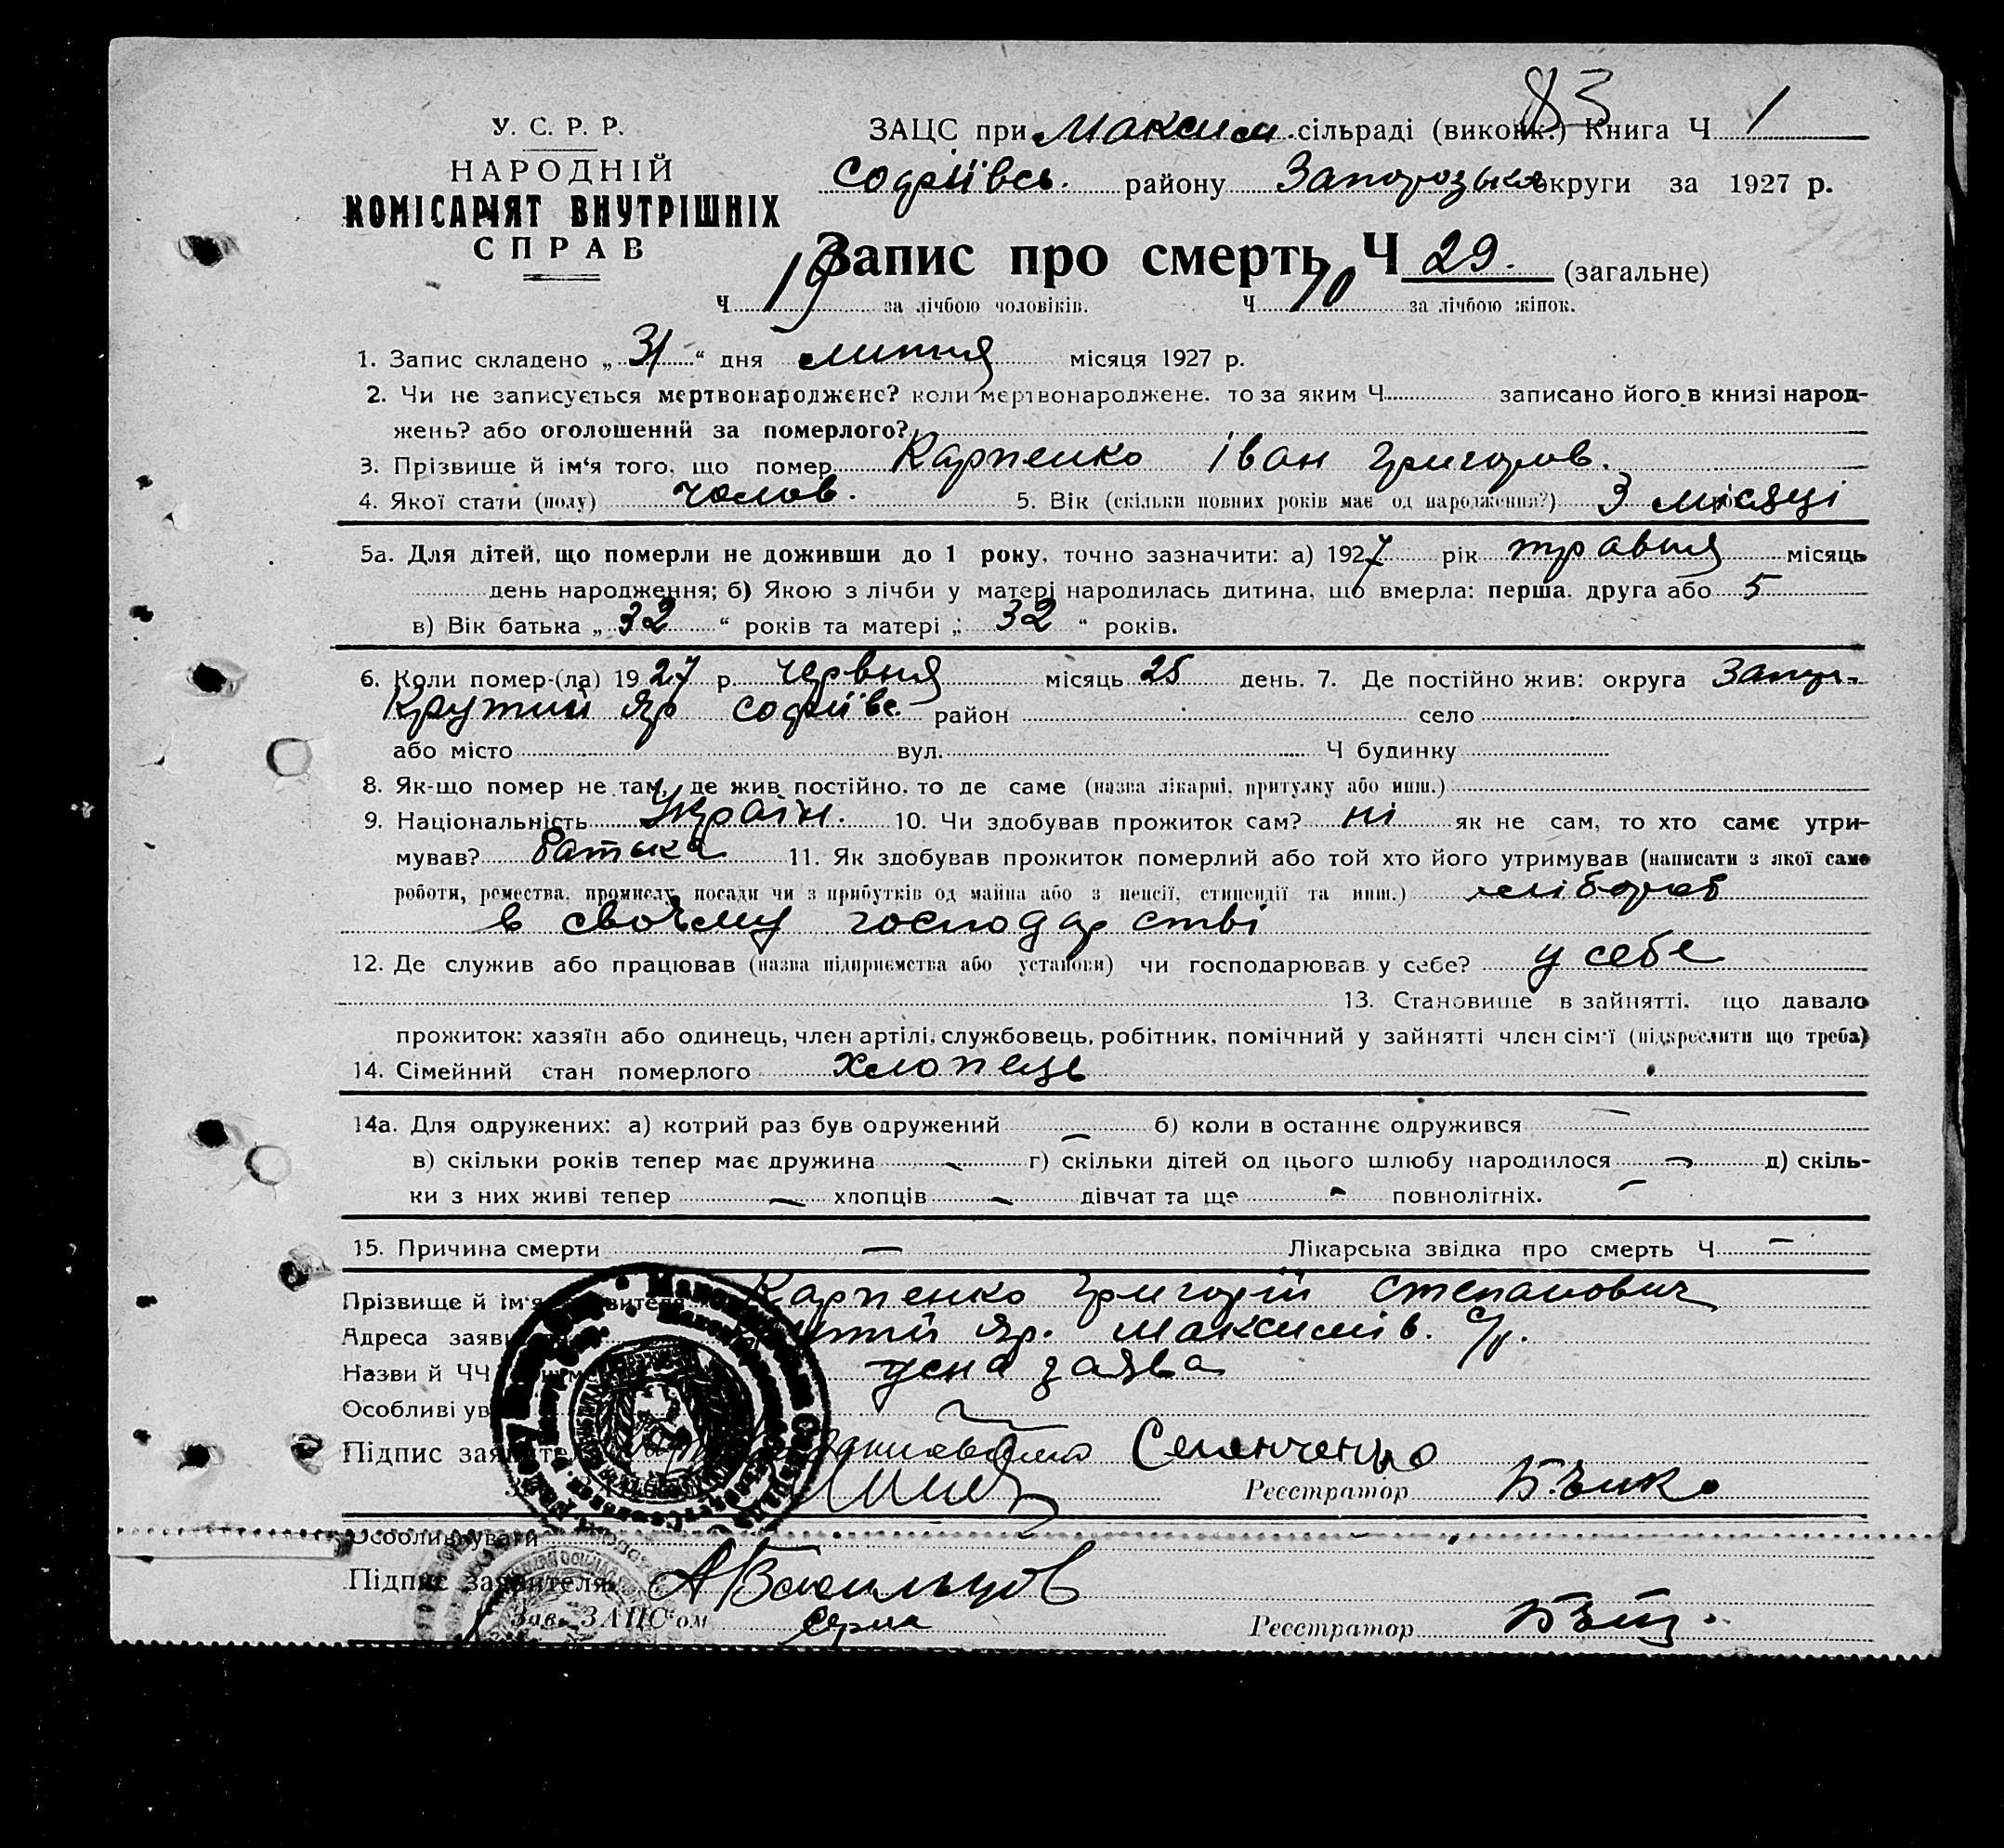 83
У. С. Р. Р.
НАРОДНІЙ
КОМІСАРІЯТ ВНУТРІШНІХ
СПРАВ
ЗАЦС при Максим. сільраді (виконк.) Книга Ч 1
Софіївсь. району Запорозька округи за 1927 р.
Запис про смерть Ч 29. (загальне)
Ч 19 за лічбою чоловіків. Ч 10 за лічбою жінок.
1. Запис складено „ 31 “ дня липня місяця 1927 р.
2. Чи не записується мертвонароджене? коли мертвонароджене. то за яким Ч записано його в книзі народ-
жень? або оголошений за померлого?
3. Прізвище й ім‘я того, що помер Карпенко Іван Григоров.
4. Якої стати (полу) чолов. 5. Вік (скільки повних років має од народження?) 3 місяці
5а. Для дітей, що померли не доживши до 1 року, точно зазначити: а) 1927 рік травня місяць
день народження; б) Якою з лічби у матері народилась дитина, що вмерла: перша. друга або 5
в) Вік батька „ 32 “ років та матері „ 32 “ років.
6. Коли помер-(ла) 1927 р. червня місяць 25 день. 7. Де постійно жив: округа Запор.
Крутий Яр Софіївс. район село
або місто вул. Ч будинку
8. Як-що помер не там, де жив постійно, то де саме (назва лікарні, притулку або инш.)
9. Національність Україн. 10. Чи здобував прожиток сам? ні як не сам, то хто саме утри-
мував? батька 11. Як здобував прожиток померлий або той хто його утримував (написати з якої саме
роботи, ремества, промислу, посади чи з прибутків од майна або з пенсії, стипендії та инш.) хлібороб
в своєму господарстві
12. Де служив або працював (назва підприємства або установи) чи господарював у себе? у себе
13. Становище в зайнятті, що давало
прожиток: хазяїн або одинець, член артілі, службовець, робітник, помічний у зайнятті член сім‘ї (підкреслити що треба)
14. Сімейний стан померлого хлопець
14а. Для одружених: а) котрий раз був одружений — б) коли в останнє одружився —
в) скільки років тепер має дружина — г) скільки дітей од цього шлюбу народилося — д) скіль-
ки з них живі тепер — хлопців — дівчат та ще - повнолітніх. —
15. Причина смерти — Лікарська звідка про смерть Ч —
Прізвище й ім‘я Карпенко Григорій Степанович
Адреса Яр. Максимів. с/р.
Назви й ЧЧ усна заява
Особливі
Підпис Семенченко
Реєстратор
Особливі уваги
Підпис заявителя АВасильцов
Зав. ЗАЦС‘ом
Реєстратор